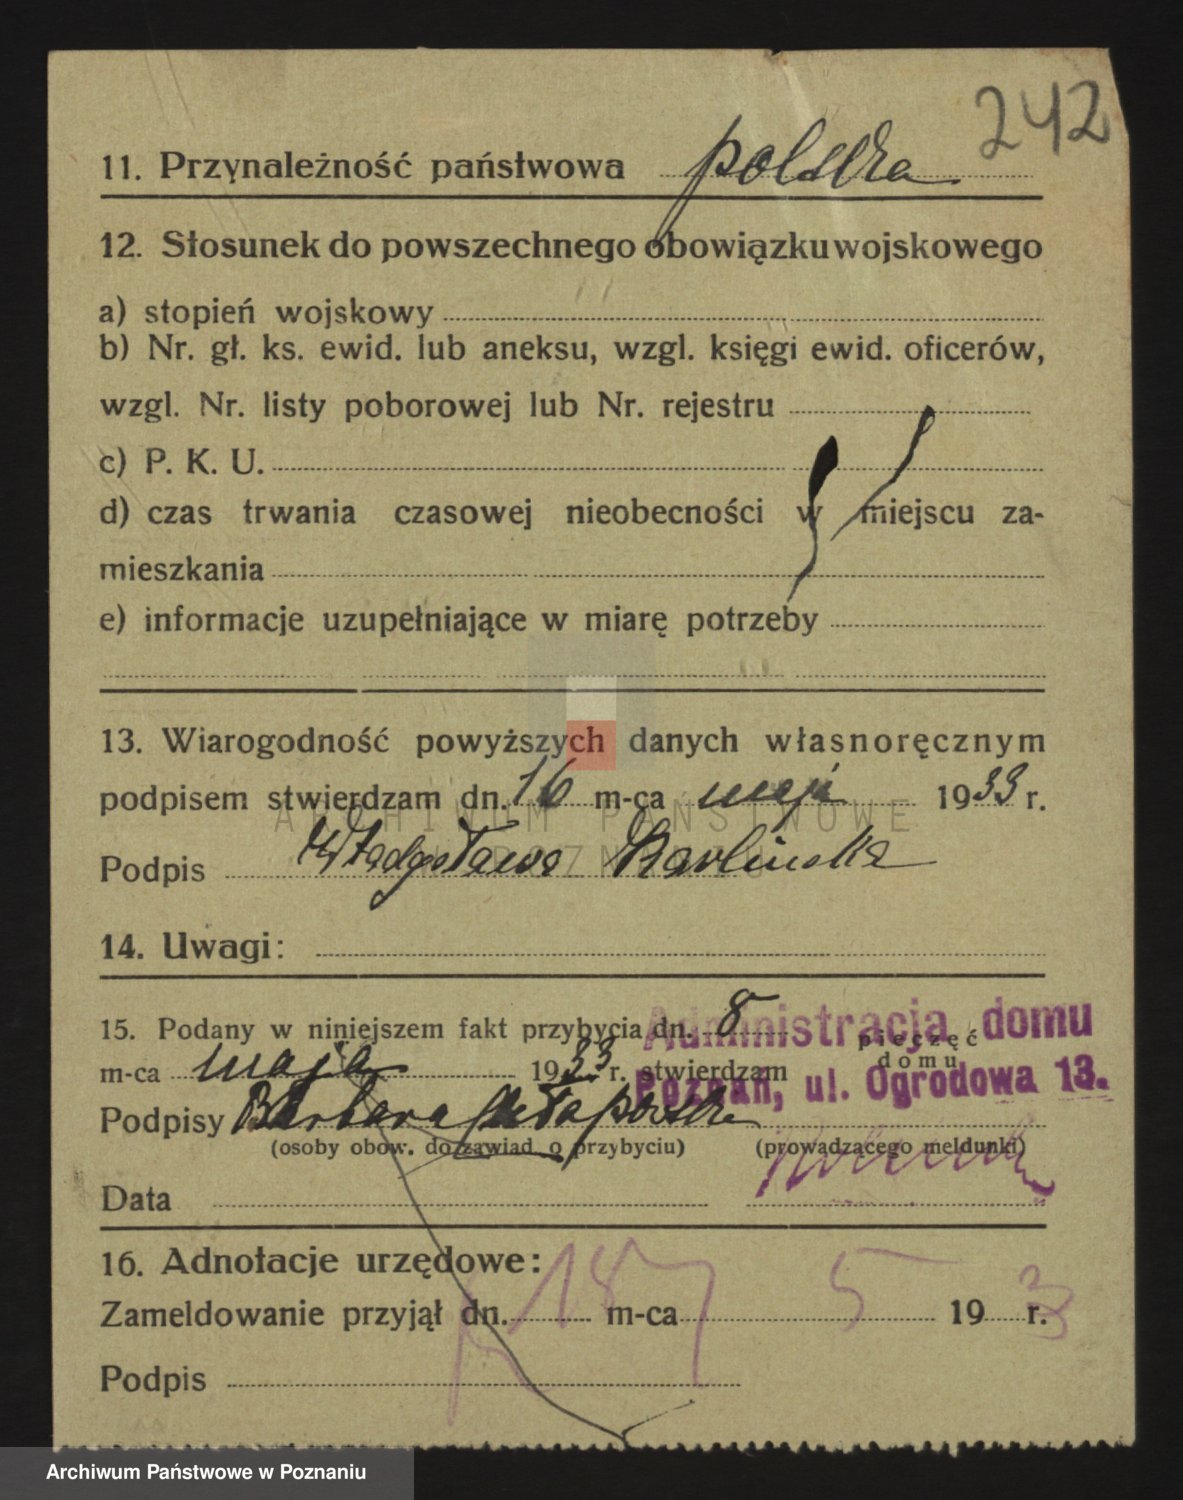 242
11. Przynależność państwowa polska
12. Stosunek do powszechnego obowiązku wojskowego
a) stopień wojskowy
b) Nr. gł. ks. ewid. lub aneksu, wzgl. księgi ewid. oficerów,
wzgl. Nr. listy poborowej lub Nr. rejestru
c) P. K. U.
d) czas trwania czasowej nieobecności w miejscu za-
mieszkania
e) informacje uzupełniające w miarę potrzeby
13. Wiarogodność powyższych danych własnoręcznym
podpisem stwierdzam dn. 16 m-ca maja 1933 r.
ARCHIWUM PAŃSTWOWE
W POZNANIU
Podpis Władysława Karlinska
14. Uwagi:
Administracja domu
15. Podany w niniejszem fakt przybycia dn. 8
pieczęć
domu
m-ca maja 1933 r. stwierdzam
Poznań, ul. Ogrodowa 13.
Podpisy Barbara
(osoby obow. do zawiad. o przybyciu) (prowadzącego meldunki)
Data
16. Adnotacje urzędowe:
Zameldowanie przyjął dn. 18 m-ca 5 193 r.
Podpis
Archiwum Państwowe w Poznaniu